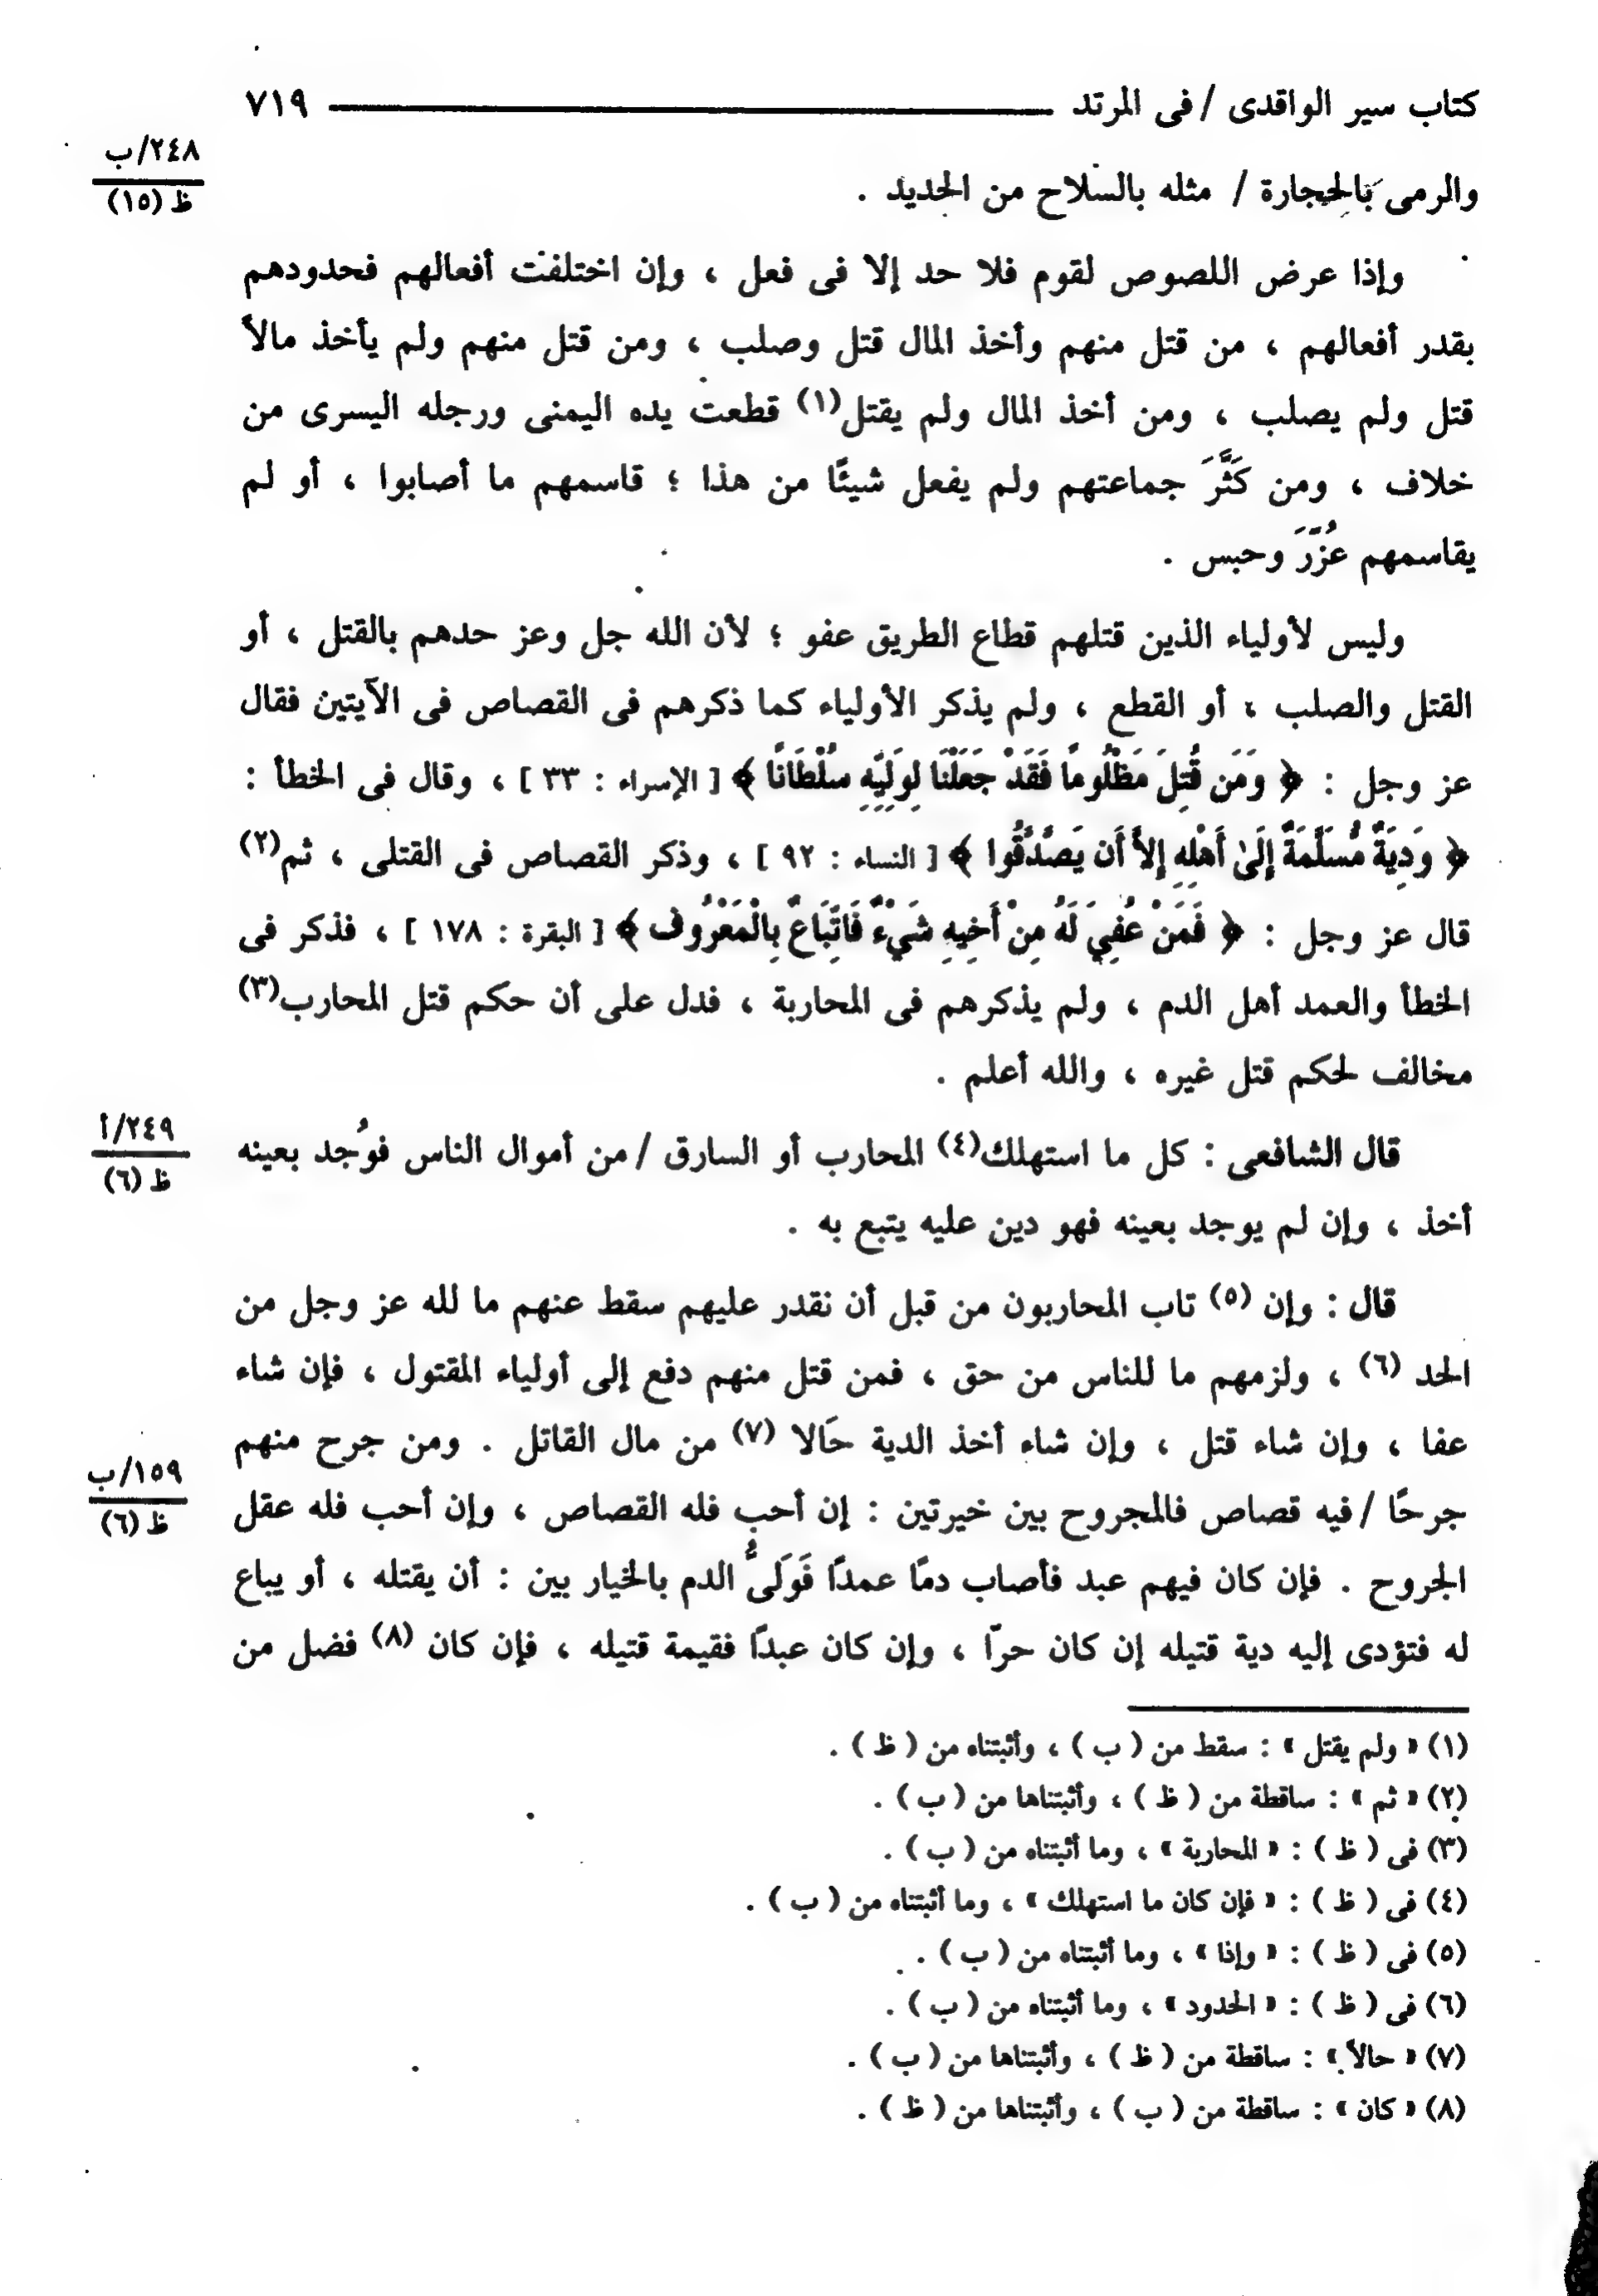 كتاب سير الواقدى / فى المرتد ٧١٩
٢٤٨/ب
ظ (١٥)
والرمى بالحجارة / مثله بالسلاح من الحديد .
وإذا عرض اللصوص لقوم فلا حد إلا فى فعل ، وإن اختلفت أفعالهم فحدودهم
بقدر أفعالهم ، من قتل منهم وأخذ المال قتل وصلب ، ومن قتل منهم ولم يأخذ مالاً
قتل ولم يصلب ، ومن أخذ المال ولم يقتل(١) قطعت يده اليمنى ورجله اليسرى من
خلاف ، ومن كَثَّرَ جماعتهم ولم يفعل شيئًا من هذا ؛ قاسمهم ما أصابوا ، أو لم
يقاسمهم عُزِّرَ وحبس .
وليس لأولياء الذين قتلهم قطاع الطريق عفو ؛ لأن الله جل وعز حدهم بالقتل ، أو
القتل والصلب ، أو القطع ، ولم يذكر الأولياء كما ذكرهم فى القصاص فى الآيتين فقال
عز وجل : ﴿ وَمَن قُتِلَ مَظْلُومًا فَقَدْ جَعَلْنَا لِوَلِيِّهِ سُلْطَانًا ﴾ [ الإسراء : ٣٣ ] ، وقال فى الخطأ :
﴿ وَدِيَةٌ مُّسَلَّمَةٌ إِلَىٰ أَهْلِهِ إِلاَّ أَن يَصَّدَّقُوا ﴾ [ النساء : ٩٢ ] ، وذكر القصاص فى القتلى ، ثم(٢)
قال عز وجل : ﴿ فَمَنْ عُفِيَ لَهُ مِنْ أَخِيهِ شَيْءٌ فَاتِّبَاعٌ بِالْمَعْرُوفِ ﴾ [ البقرة : ١٧٨ ] ، فذكر فى
الخطأ والعمد أهل الدم ، ولم يذكرهم فى المحاربة ، فدل على أن حكم قتل المحارب(٣)
مخالف لحكم قتل غيره ، والله أعلم .
٢٤٩/أ
ظ (٦)
قال الشافعى : كل ما استهلك(٤) المحارب أو السارق / من أموال الناس فوُجد بعينه
أخذ ، وإن لم يوجد بعينه فهو دين عليه يتبع به .
قال : وإن (٥) تاب المحاربون من قبل أن نقدر عليهم سقط عنهم ما لله عز وجل من
الحد (٦) ، ولزمهم ما للناس من حق ، فمن قتل منهم دفع إلى أولياء المقتول ، فإن شاء
عفا ، وإن شاء قتل ، وإن شاء أخذ الدية حَالا (٧) من مال القاتل . ومن جرح منهم
١٥٩/ب
ظ (٦)
جرحًا / فيه قصاص فالمجروح بين خيرتين : إن أحب فله القصاص ، وإن أحب فله عقل
الجروح . فإن كان فيهم عبد فأصاب دمًا عمدًا فَوَلَىُّ الدم بالخيار بين : أن يقتله ، أو يباع
له فتؤدى إليه دية قتيله إن كان حرًا ، وإن كان عبدًا فقيمة قتيله ، فإن كان (٨) فضل من
(١) « ولم يقتل » : سقط من ( ب ) ، وأثبتناه من ( ظ ) .
(٢) « ثم » : ساقطة من ( ظ ) ، وأثبتناها من ( ب ) .
(٣) فى ( ظ ) : « المحاربة » ، وما أثبتناه من ( ب ) .
(٤) فى ( ظ ) : « فإن كان ما استهلك » ، وما أثبتناه من ( ب ) .
(٥) فى ( ظ ) : « وإذا » ، وما أثبتناه من ( ب ) .
(٦) فى ( ظ ) : « الحدود » ، وما أثبتناه من ( ب ) .
(٧) « حالاً » : ساقطة من ( ظ ) ، وأثبتناها من ( ب ) .
(٨) « كان » : ساقطة من ( ب ) ، وأثبتناها من ( ظ ) .